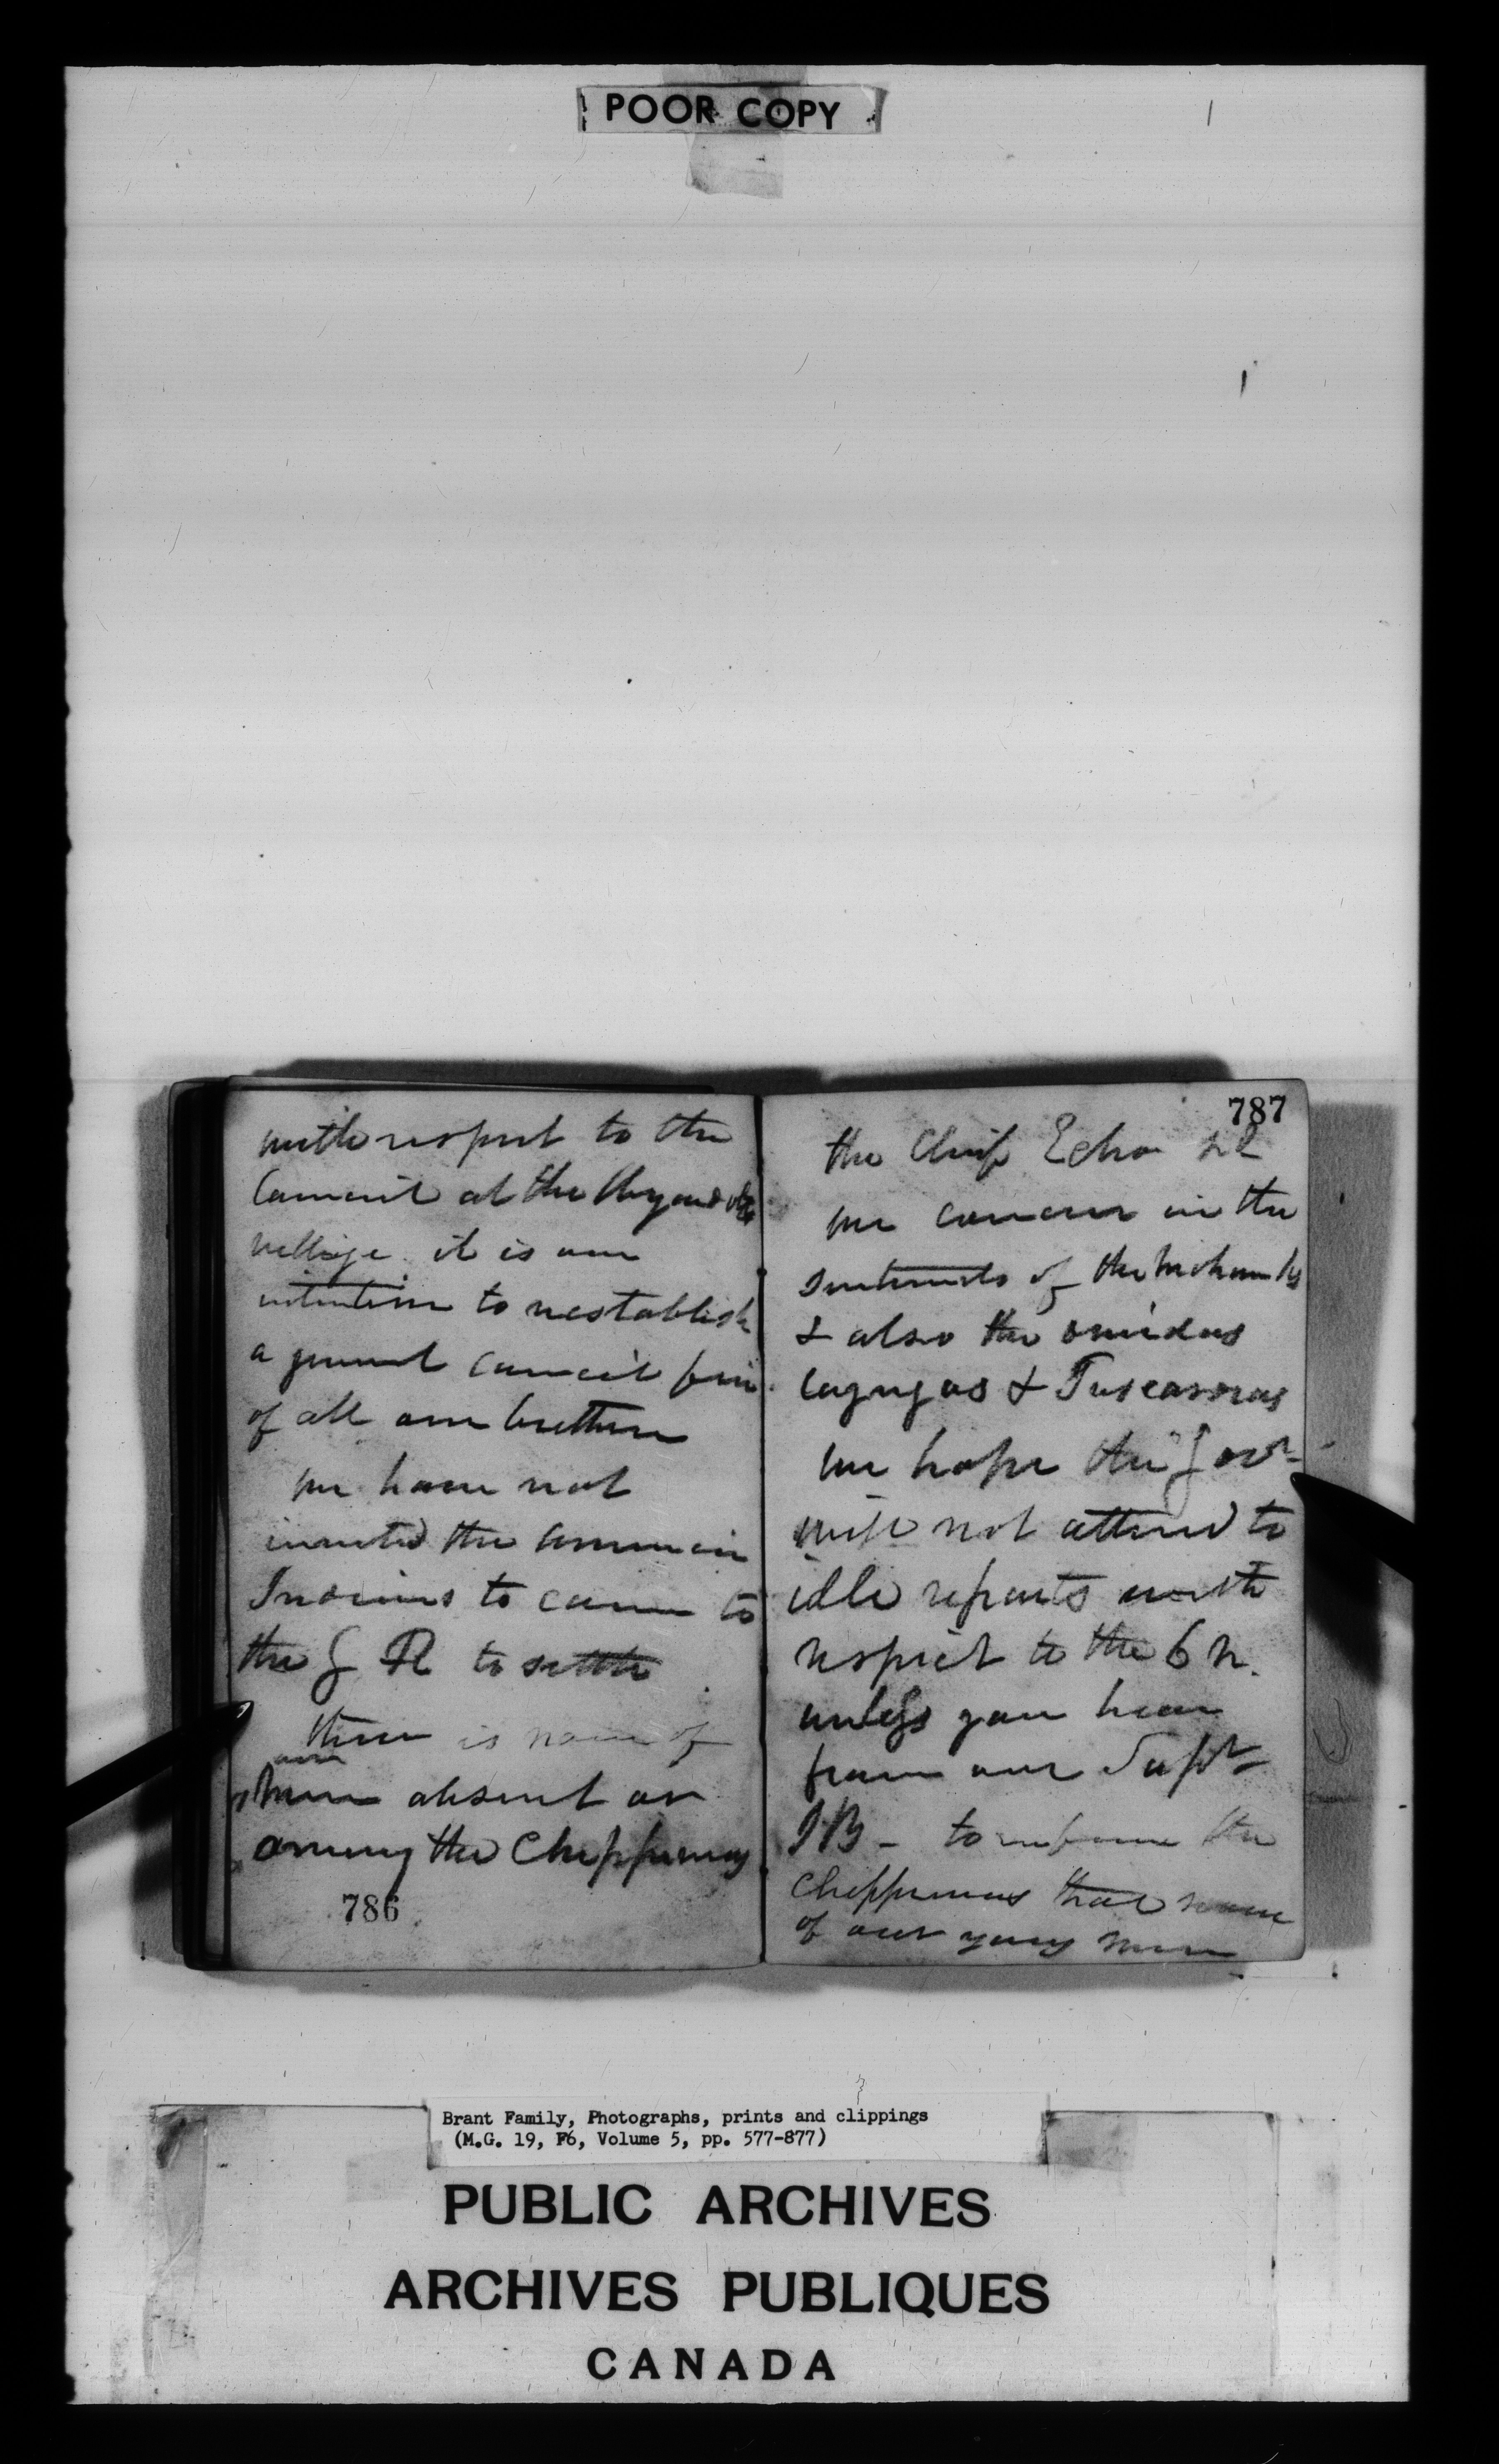 POOR COPY
with respect to the
Council at the Wyandott
village it is our
intention to reestablish
a general council fire
of all our brethern
we have not
invited the American
Indians to come to
the G R to settle
there is none of
our
men absent or
among the Chippeways
786
787
the Chief Echo
we concur in the
sentiments of the Mohawks
& also the oneidas
Cayugas & Tuscaroras
we hope the Govr
will not attend to
idle reports with
respect to the 6 N.
unless you hear
from our Supt
JB - to inform the
Chippewas that some
of our young men
Brant Family, Photographs, prints and clippings
(M.G. 19, F6, Volume 5, pp. 577-877)
PUBLIC ARCHIVES
ARCHIVES PUBLIQUES
CANADA